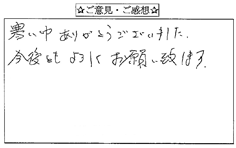 ☆ご意見・ご感想☆
寒い中ありがとうございました。
今後ともよろしくお願い致します。